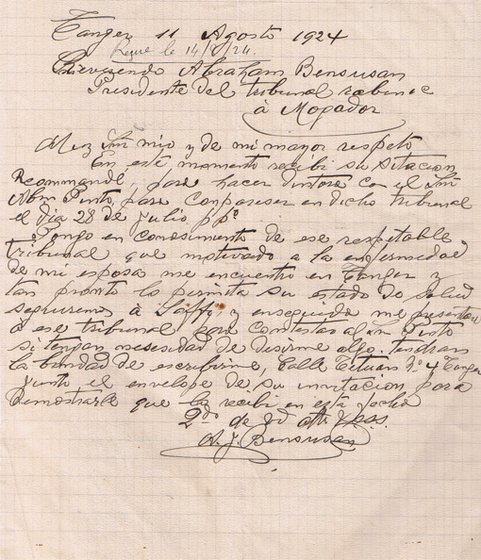 Tanger 11 Agosto 1924
Reçue le 14/8/24.
Reverendo Abraham Bensusan
Presidente del tribunal rabinic
à Mogador
Muy Snr mio y de mi mayor respeto
En este momento recibi su sitacion
Recommandé, para hacer Dintora con el Snr
Abm Pinto, para conpareser en dicho tribunal
el dia 28 de julio pp°
Pongo en conosimiento de ese respetable
tribunal que motivado a la enfermedad
de mi esposa me encuentro en Tanger y
tan pronto lo permita su estado de salud
seguiremos à Saffy, y enseguida me presentare
a ese tribunal para contestar al Snr Pinto
si tengan nesesidad de desirme algo. tendran
la bondad de escribirme, Calle Tetuan N° 4 Tanger
junto el envelope de su invitacion para
demostrarle que la recibi en esta fecha
de
A. J. Bensusan